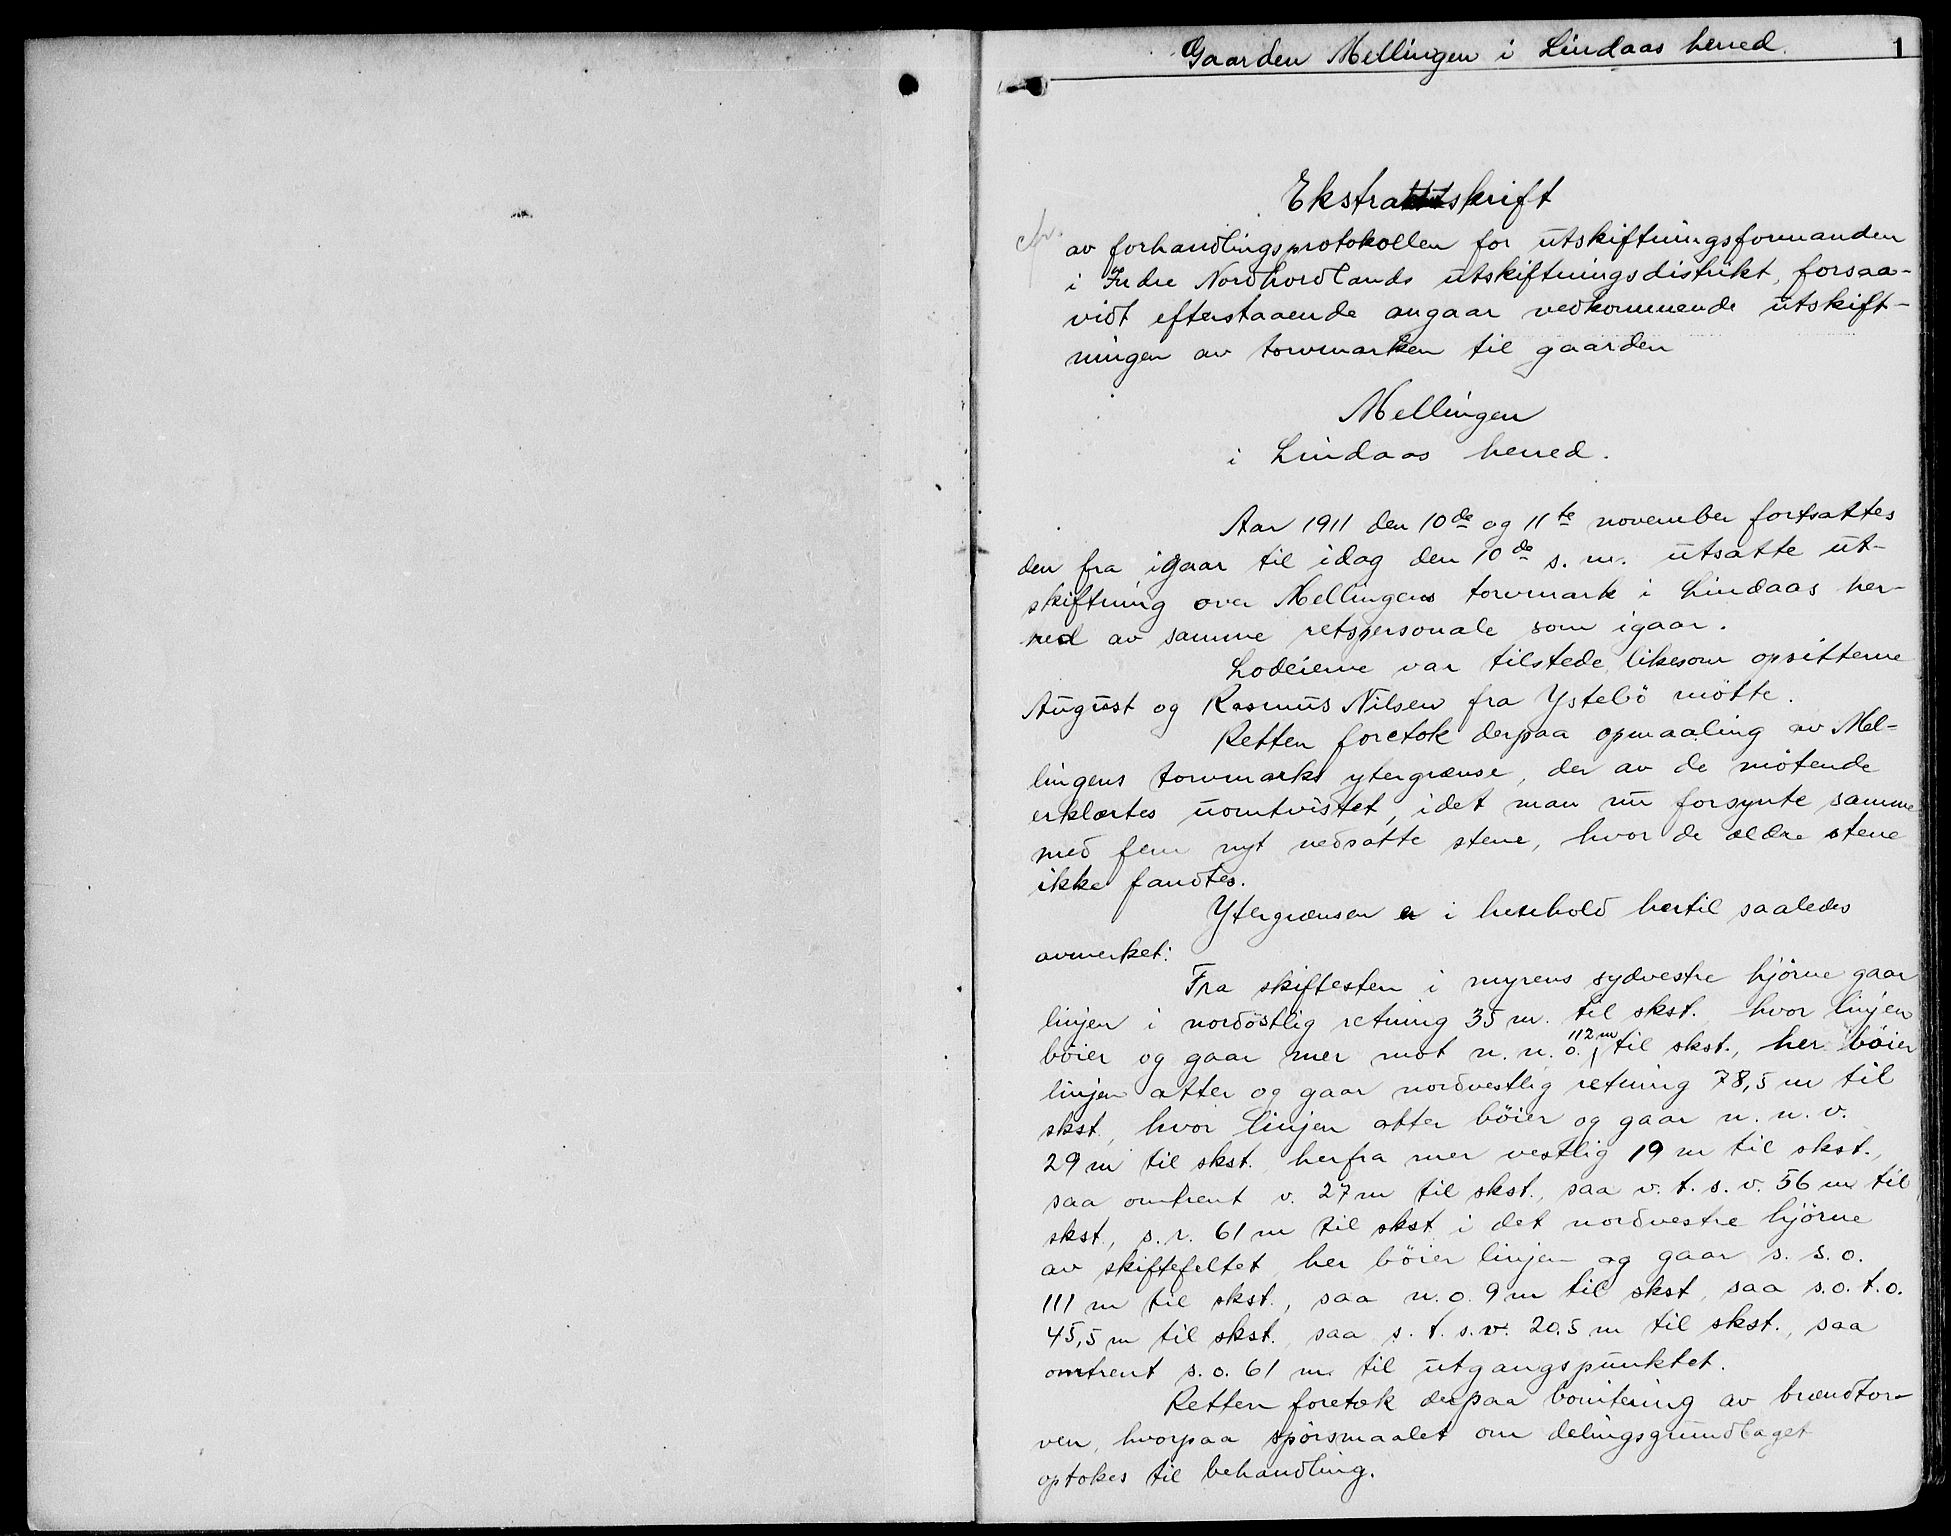 Gaarden Mellingen i Lindaas herred.
1
Ekstraktskrift
av forhandlingsprotokollen for utskiftningsformanden
i Indre Nordhordlands utskiftningsdistrikt, forsaa-
vidt efterstaaende angaar vedkommende utskift-
ningen av torvmarken til gaarden
Mellingen
i Lindaas herred.
Aar 1911 den 10de og 11te november fortsattes
den fra igaar til idag den 10de s. m. utsatte ut-
skiftning over Mellingens torvmark i Lindaas her-
red av samme retspersonale som igaar.
Lodeierne var tilstede, likesom opsitterne
August og Rasmus Nilsen fra Ystebö mötte.
Retten foretok derpaa opmaaling av Mel-
lingens torvmarks ytergrænse, der av de mötende
erklærtes uomtvistet, idet man nu forsynte samme
med fem nyt nedsatte stene, hvor de ældre stene
ikke fandtes.
Ytergrænsen er i henhold hertil saaledes
avmerket:
Fra skiftesten i myrens sydvestre hjörne gaar
linjen i nordöstlig retning 35 m. til skst. hvor linjen
böier og gaar mer mot n. n. o. 112 m til skst., her böier
linjen atter og gaar nordvestlig retning 78,5 m til
skst., hvor linjen atter böier og gaar n. n. v.
29 m til skst. herfra mer vestlig 19 m til skst.,
saa omtrent v. 27 m til skst., saa v. t. s. v. 56 m til
skst., s. r. 61 m til skst i det nordvestre hjörne
av skiftefeltet, her böier linjen og gaar s. s. o.
111 m til skst., saa n. o. 9 m til skst, saa s. o. t. o.
45,5 m til skst., saa s. t. s. v. 20.5 m til skst., saa
omtrent s. o. 61 m til utgangspunktet.
Retten foretok derpaa bonitering av brændtor-
ven, hvorpaa spörsmaalet om delingsgrundlaget
optokes til behandling.